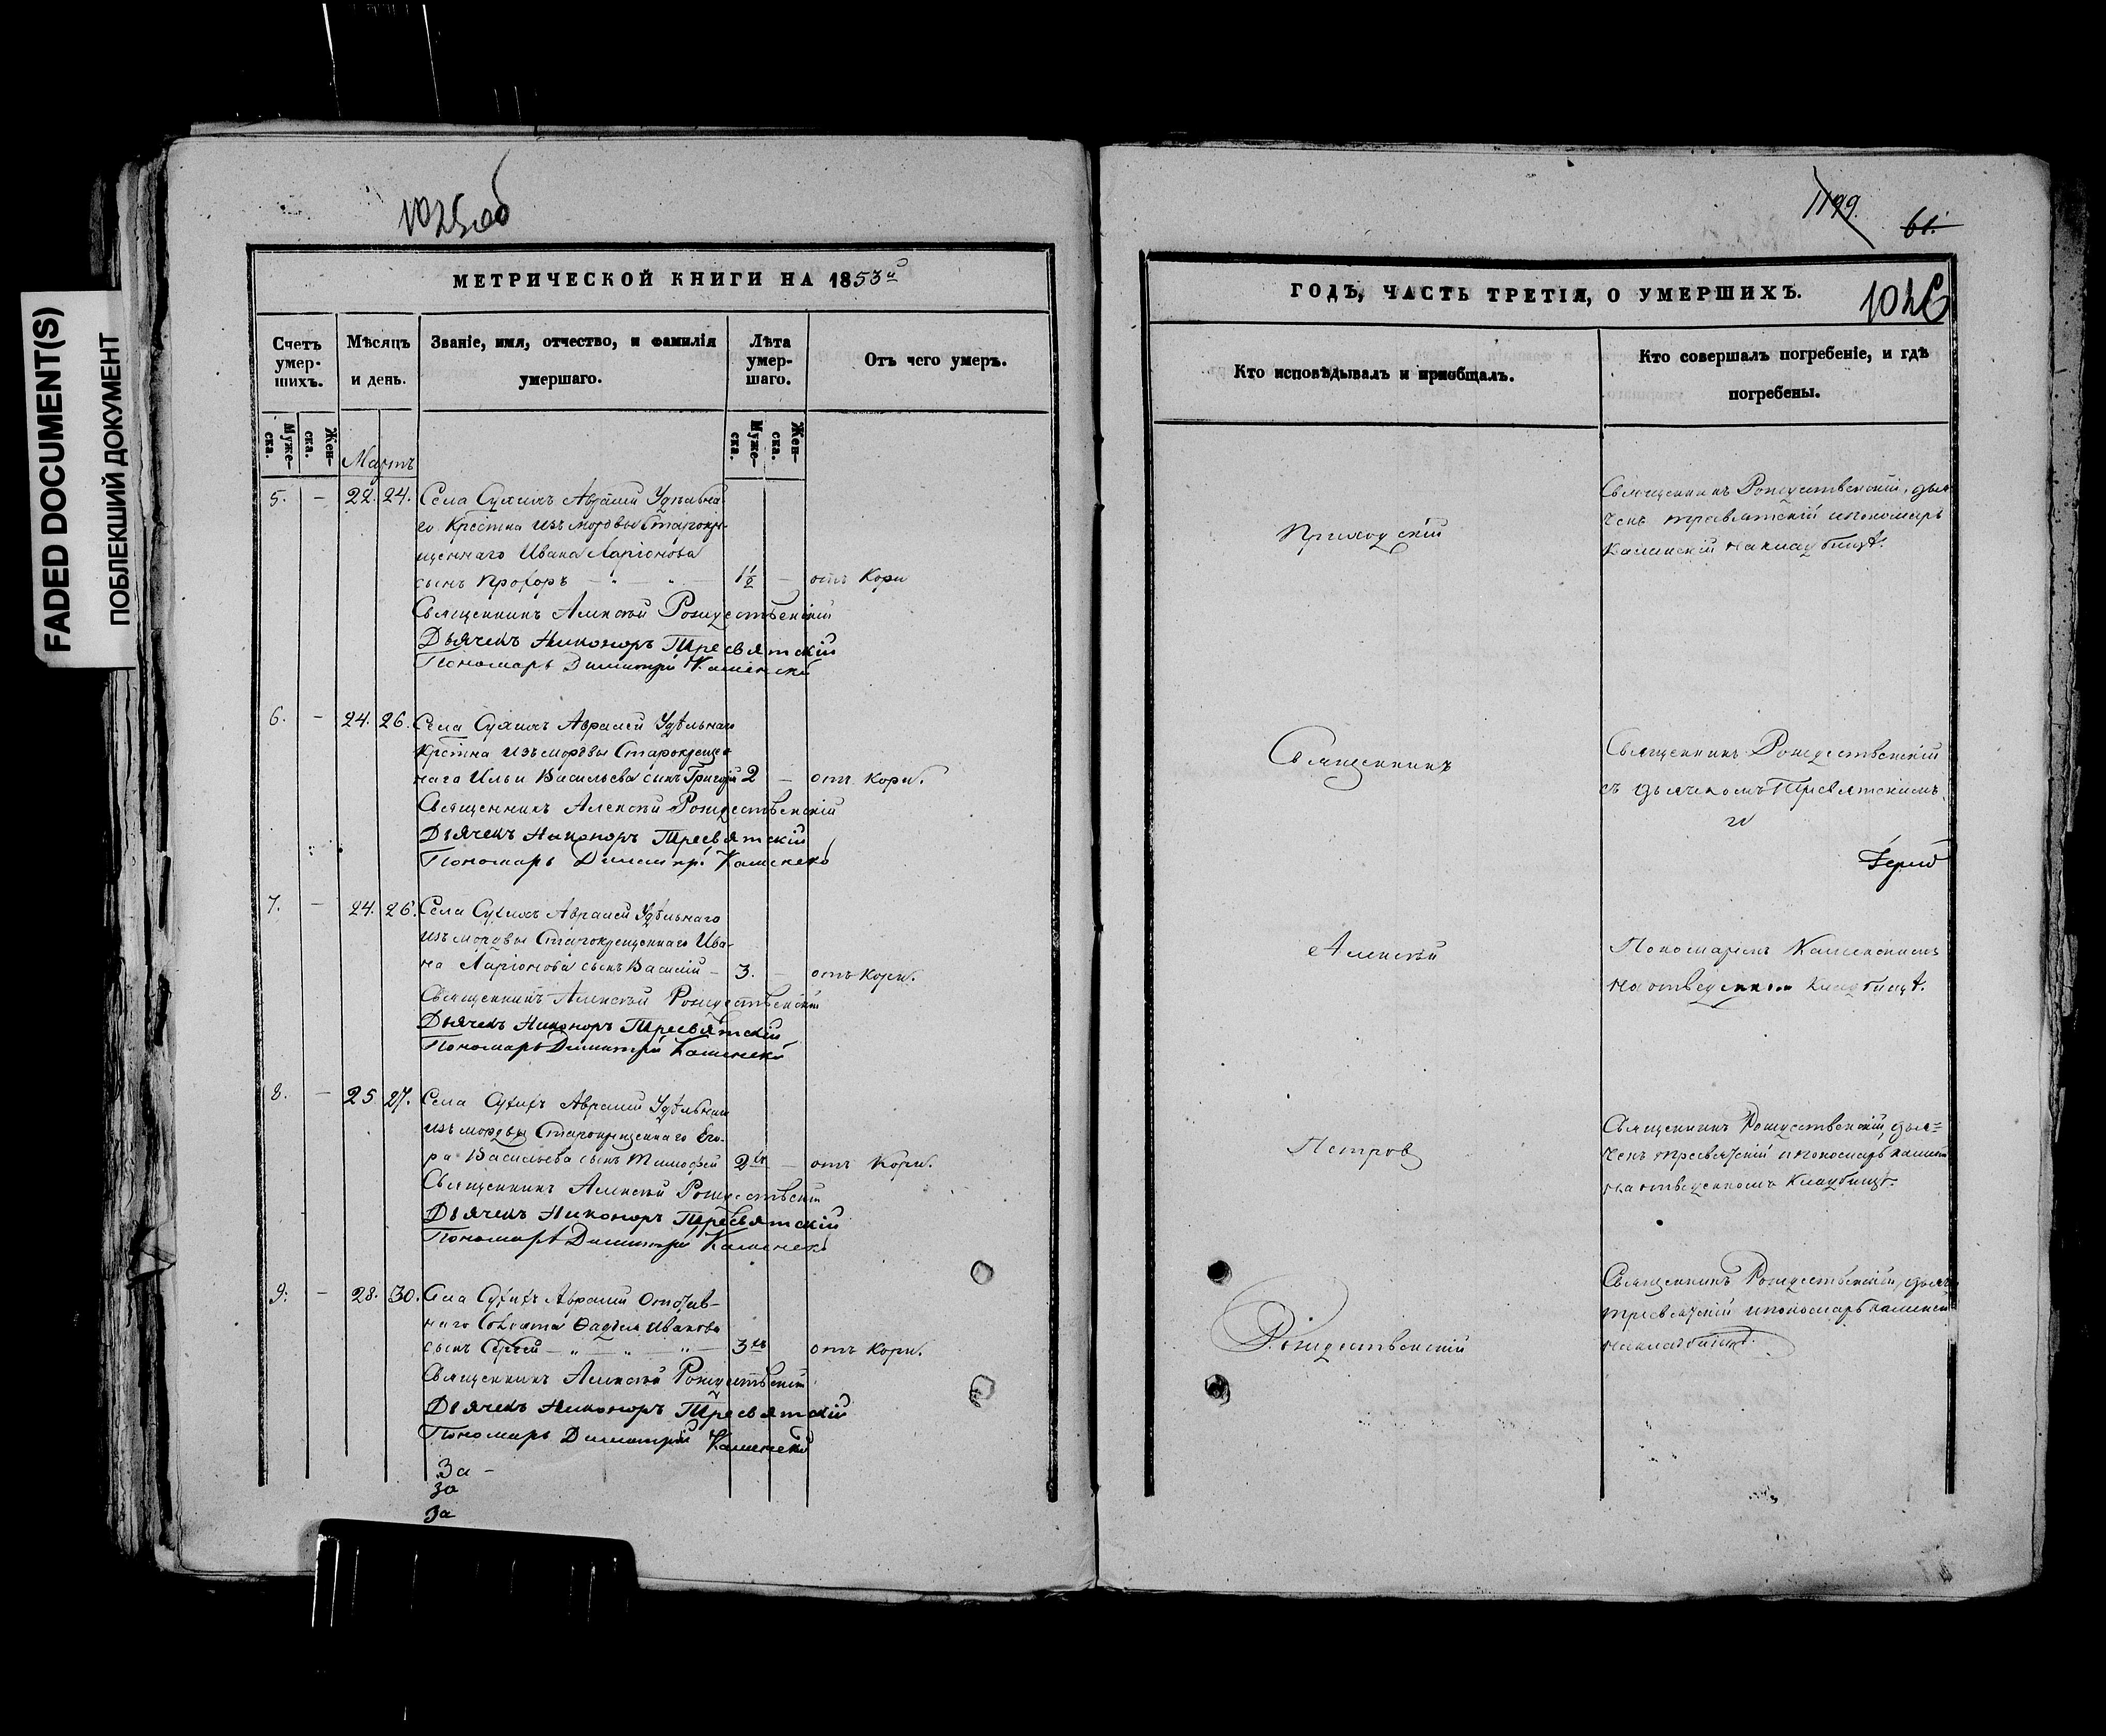 FADED DOCUMENT(S)
ПОБЛЕКШИЙ ДОКУМЕНТ
1025 об
МЕТРИЧЕСКОЙ КНИГИ НА 1853й
Счетъ умер-шихъ.
Мѣсяцъ и день.
Званіе, имя, отчество, и фамилія умершаго.
Лѣта умер-шаго.
Отъ чего умеръ.
Муже-ска.
Жен-ска.
Мартъ
Муже-ска.
Жен-ска.
5. – 22. 24. Села Сухихъ Авралей Удѣльна
го Крестна изъ мордвы Старокре
щеннаго Ивана Ларіонова
сынъ Прохоръ — " — " — 1½ – отъ Кори
Священникъ Алексѣй Рождественскій
Дьячекъ Никоноръ Тресвятскій
Пономарь Димитрій Каменскій
6. – 24. 26. Села Сухихъ Авралей Удѣльнаго
Крестна изъ мордвы Старокреще
наго Ильи Васильева сынъ Григорій 2 – отъ Кори.
Священникъ Алексѣй Рождественскій
Дьячекъ Никоноръ Тресвятскій
Пономарь Димитрій Каменскій
7. – 24. 26. Села Сухихъ Авралей Удѣльнаго
изъ мордвы Старокрещеннаго Ива-
на Ларіонова сынъ Василій – 3. – отъ Кори.
Священникъ Алексѣй Рождественскій
Дьячекъ Никоноръ Тресвятскій
Пономарь Димитрій Каменскій
8. – 25 27. Села Сухихъ Авралей Удѣльнаго
изъ мордвы Старокрещеннаго Его-
ра Васильева сынъ Тимофей 2 – отъ Кори.
Священникъ Алексѣй Рождественскій
Дьячекъ Никоноръ Тресвятскій
Пономарь Димитрій Каменскій
9. – 28. 30. Села Сухихъ Авралей
наго Солдата Фадѣя Иванова
сынъ Сергей — " — " — " — 3 отъ Кори.
Священникъ Алексѣй Рождественскій
Дьячекъ Никоноръ Тресвятскій
Пономарь Димитрій Каменскій
За –
За
За
1199.
61.
ГОДЪ, ЧАСТЬ ТРЕТІЯ, О УМЕРШИХЪ.
1026
Кто исповѣдывалъ и приобщалъ.
Кто совершалъ погребеніе, и гдѣ погребены.
Приходскій
Священникъ Рождественскій, дья
чекъ тресвятскій и пономарь
Каменскій на кладбищѣ.
Священникъ
Священникъ Рождественскій
съ дьячкомъ Тресвятскимъ
и
Алексѣй
Пономаремъ Каменскимъ
на отведенномъ кладбищѣ.
Петровъ
Священникъ Рождественскій, дья=
чекъ тресвятскій и пономарь камен
на отведенномъ кладбищѣ.
Рождественскій
Священникъ Рождественскій, дьяч
тресвятскій и пономарь каменск
на кладбищѣ.